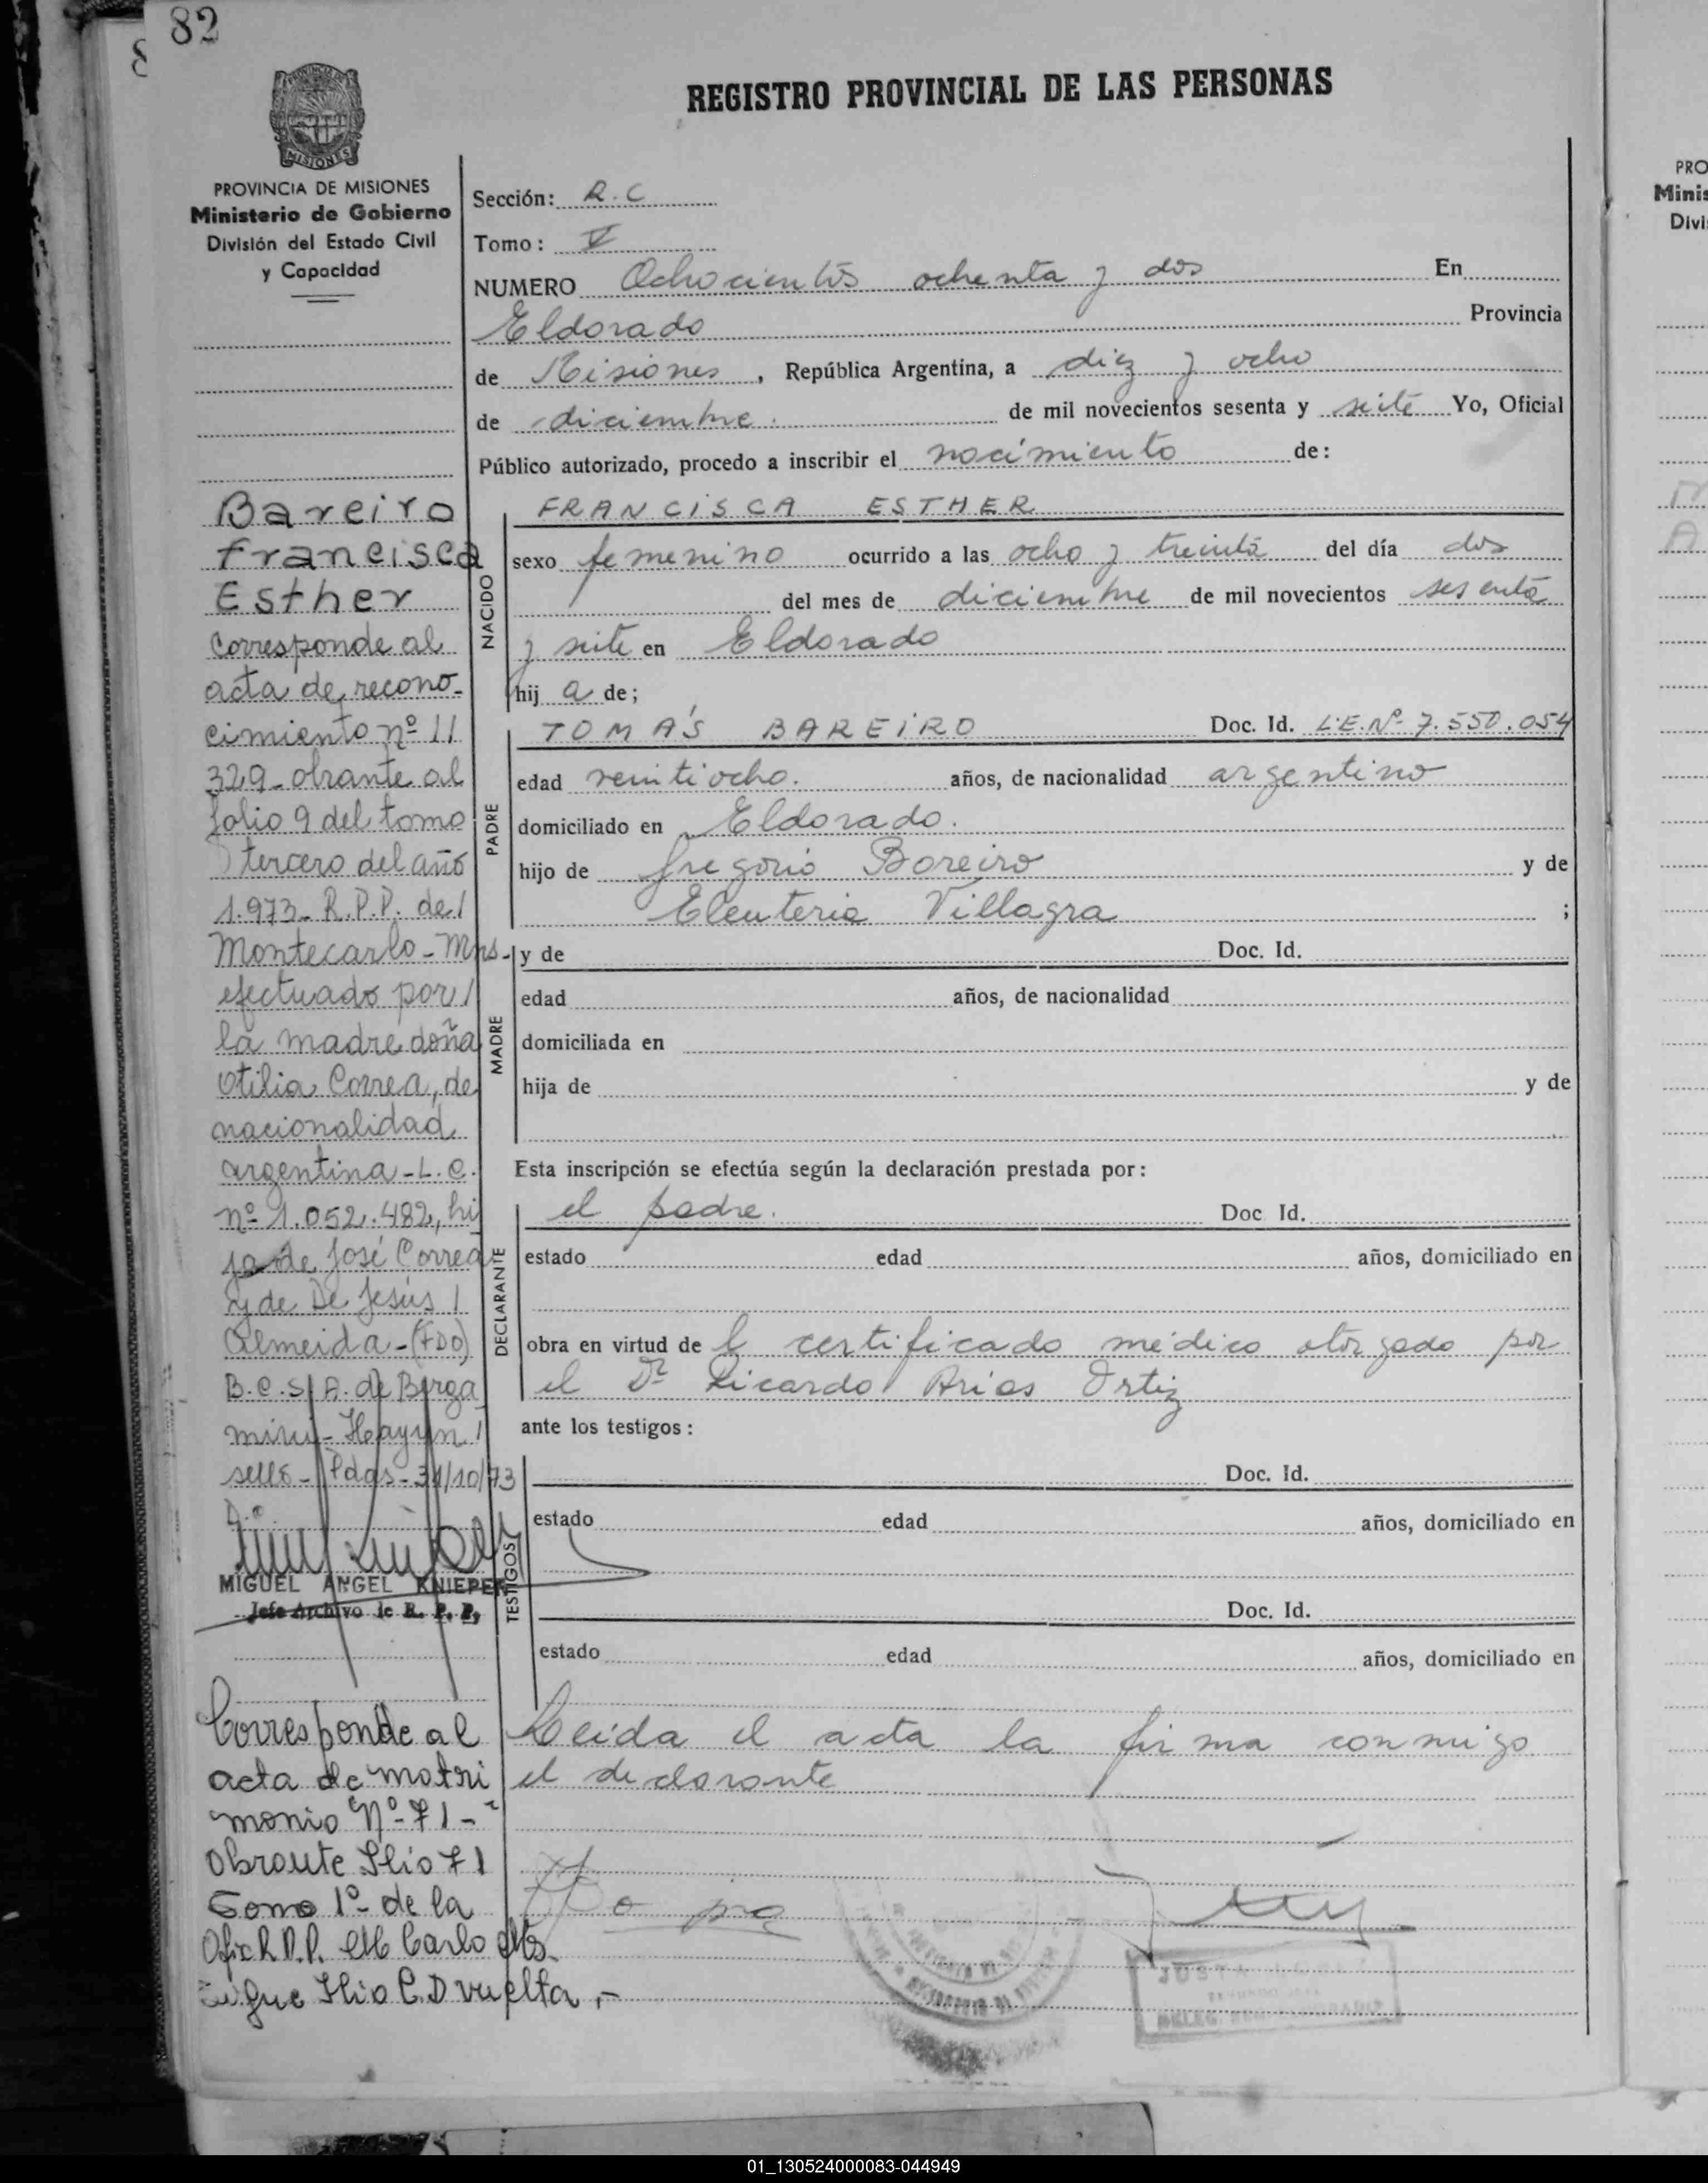 82
REGISTRO PROVINCIAL DE LAS PERSONAS
MISIONES
PROVINCIA DE MISIONES
Ministerio de Gobierno
División del Estado Civil
y Capacidad
Sección: R.C
Tomo: V
NUMERO Ochocientos ochenta y dos En
Eldorado Provincia
de Misiones, República Argentina, a diez y ocho
de diciembre. de mil novecientos sesenta y siete Yo, Oficial
Público autorizado, procedo a inscribir el nacimiento de:
FRANCISCA ESTHER
NACIDO
sexo femenino ocurrido a las ocho y treinta del día dos
del mes de diciembre de mil novecientos sesenta
y siete en Eldorado
hij a de;
PADRE
TOMÁS BAREIRO Doc. Id. L.E.Nº 7.550.054
edad veintiocho. años, de nacionalidad argentino
domiciliado en Eldorado.
hijo de Gregorio Bareiro y de
Eleuteria Villagra ;
MADRE
y de Doc. Id.
edad años, de nacionalidad
domiciliada en
hija de y de
Esta inscripción se efectúa según la declaración prestada por:
DECLARANTE
el padre. Doc Id.
estado edad años, domiciliado en
obra en virtud de l certificado médico otorgado por
el Dr Ricardo Arias Ortiz
ante los testigos:
TESTIGOS
Doc. Id.
estado edad años, domiciliado en
Doc. Id.
estado edad años, domiciliado en
Leida el acta la firma conmigo
el declarante
Bareiro
Francisca
Esther
Corresponde al
acta de recono-
cimiento nº 11
329-obrante al
folio 9 del tomo
tercero del año
1.973-R.P.P. de/
Montecarlo-Mns-
efectuado por/
la madre doña
Otilia Correa, de
nacionalidad
argentina-L.C.
nº 1.052.482, hi
ja de José Correa
y de De Jesús/
Almeida-(FDO)
B.C.S. A. de Birga
sello-Pdas-31/10/73
MIGUEL ANGEL KNIEPER
Jefe Archivo de R. P. P.
Corresponde al
acta de matri
monio Nº 71-
Obrante folio 71
Tomo 1º de la
Ofic R.P.P. Carlo Mns.
Sigue folio C.D vuelta.-
PRO
Minis
Divi
01_130524000083-044949